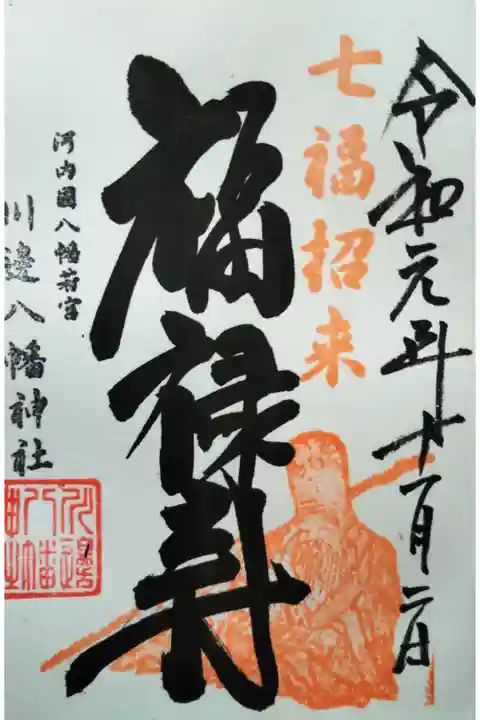 令和元年十一月二日
七福招来
福禄寿
河内國八幡若宮
川邊八幡神社